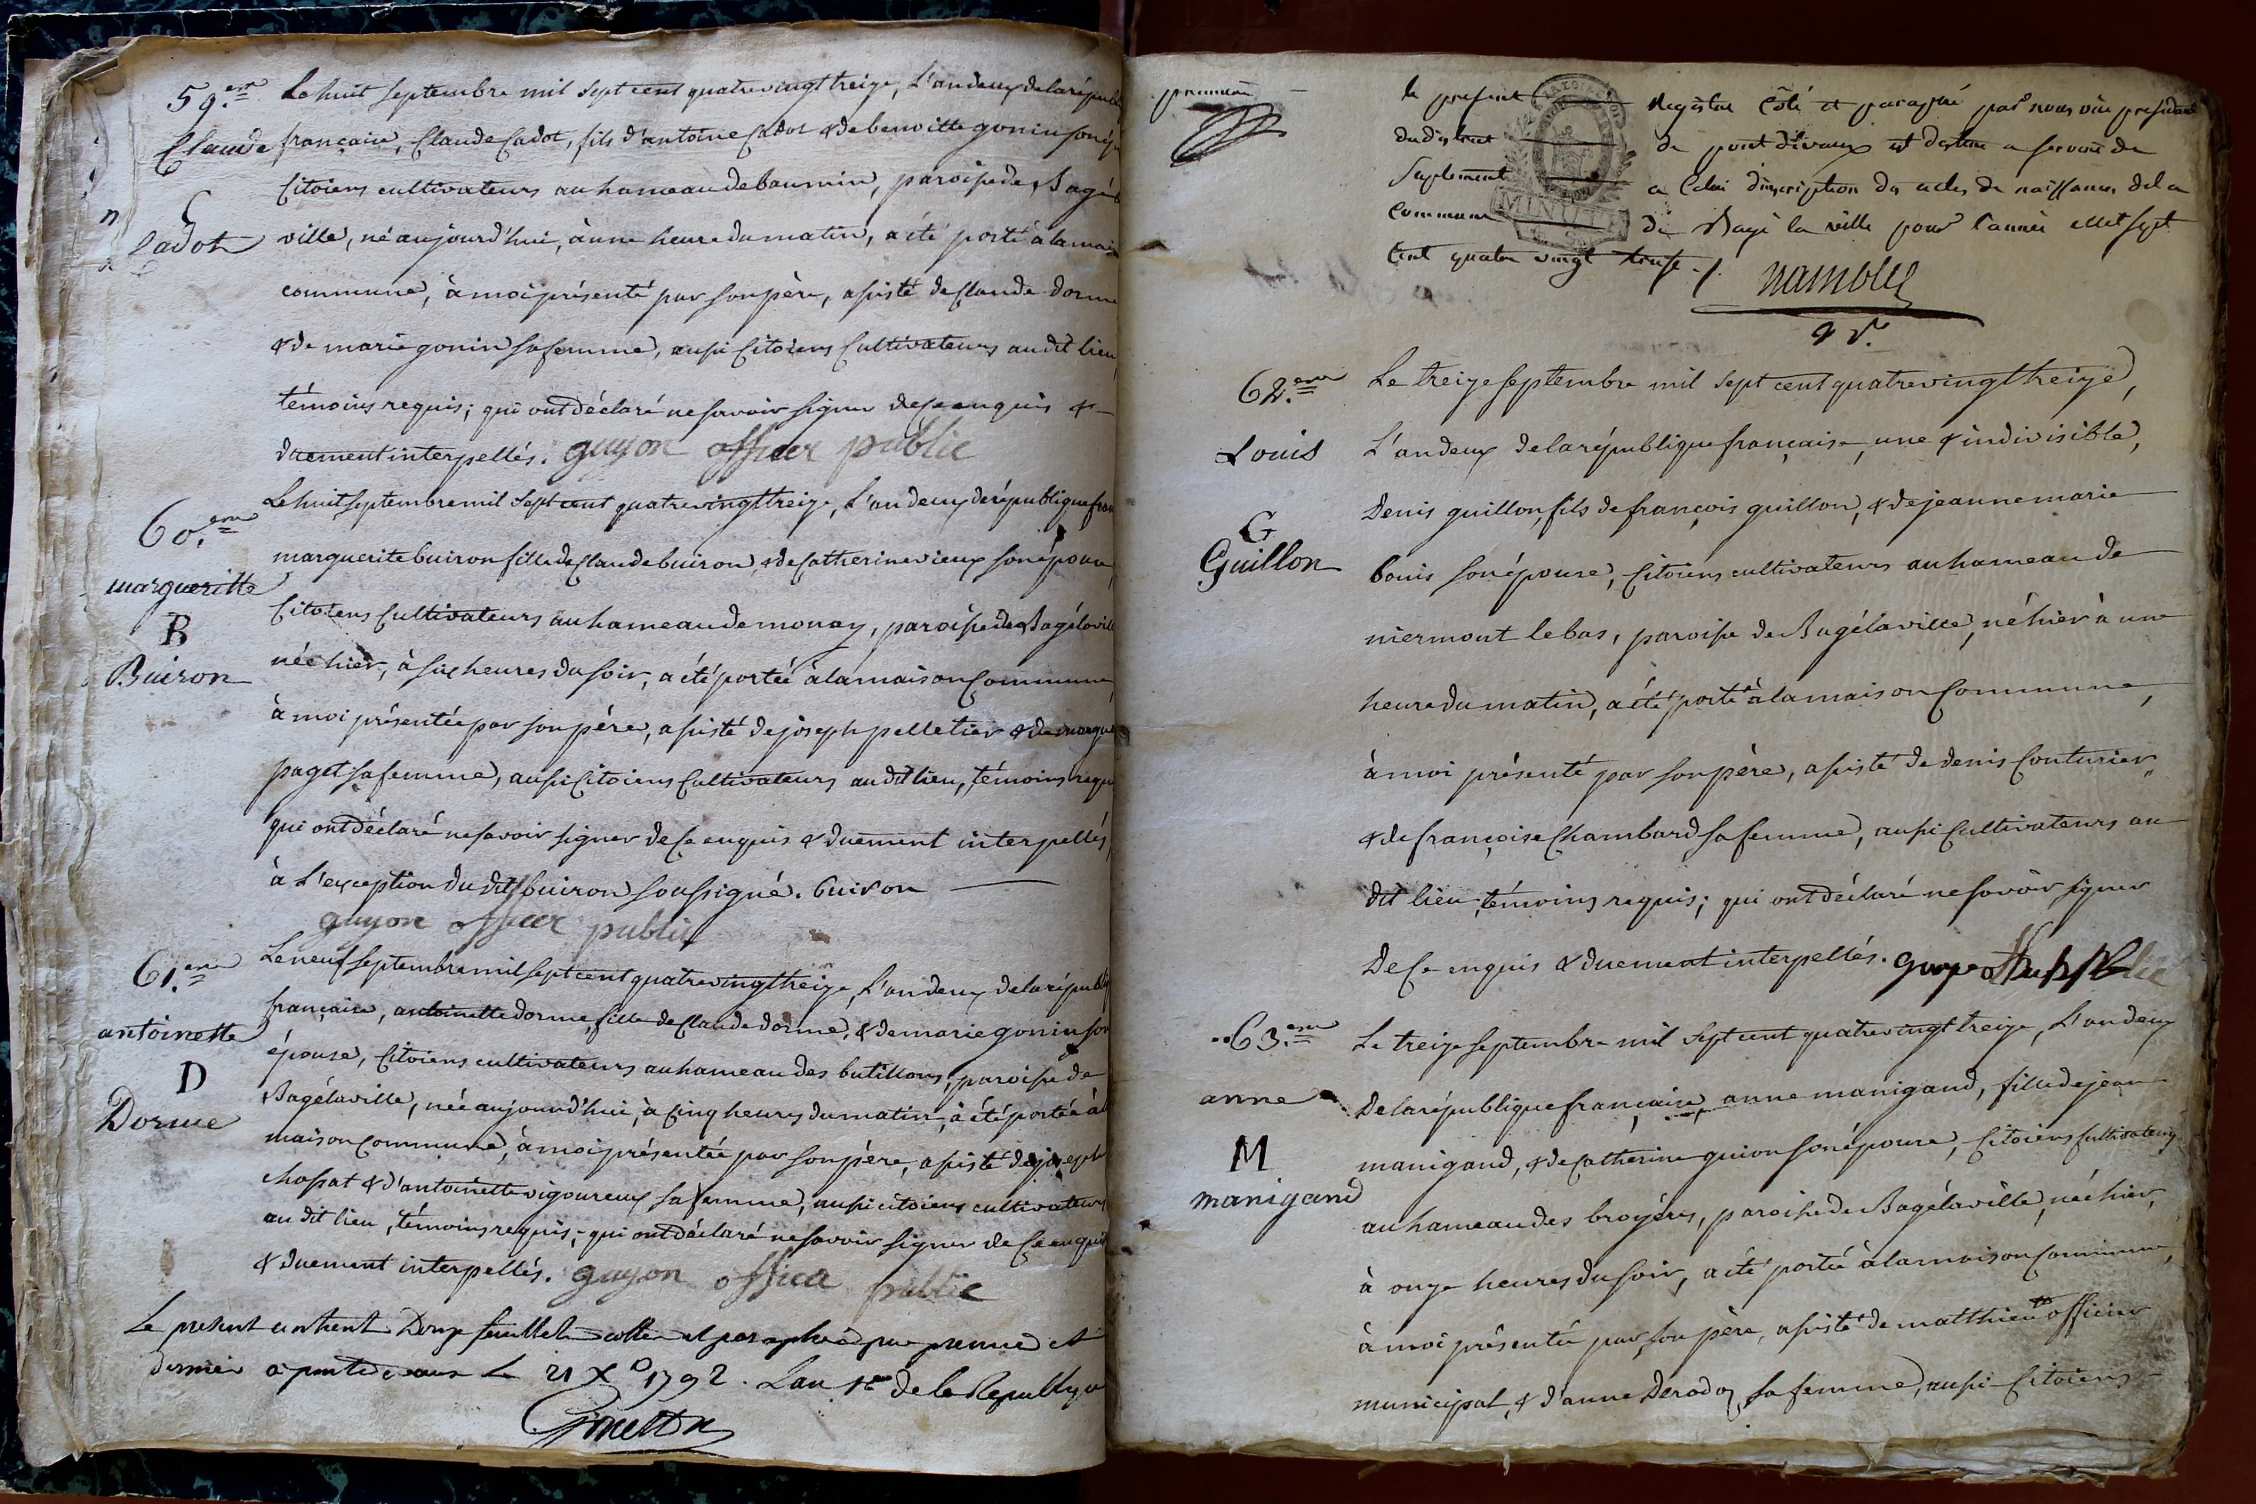 59.eme Le huit septembre mil sept cent quatrevingt treize, L'an deux de la répub
Claude française, Claude Cadot, fils d'antoine Cadot & de benoitte gonin son ép
Citoiens cultivateurs au hameau de baumin, paroisse de Bagé la
C
Cadot ville, né aujourd'hui, à une heure du matin, a été porté à la maison
commune, à moi présenté par son père, assisté de Claude dorme
& de marie gonin sa femme, aussi Citoiens Cultivateurs au dit lieu
témoins requis; qui ont déclaré ne savoir signer de ce enquis &
duement interpellés. guyon officer public
60.eme Le huit septembre mil sept cent quatrevingt treize, L'an deux de république fran
margueritte marguerite buiron fille de Claude buiron & de Catherine vieux son épouse,
B Citoiens Cultivateurs au hameau de monay, paroisse de Bagé la ville
Buiron née hier, à six heures du soir, a été portée à la maison Commune,
à moi présentée par son père, assisté de joseph pelletier & de margue
paget sa femme, aussi Citoiens Cultivateurs au dit lieu, témoins requ
qui ont déclaré ne savoir signer de Ce enquis & duement interpellés,
à l'exception du dit buiron soussigné. buiron
guyon officer public
61.eme Le neuf septembre mil sept cent quatrevingt treize, L'an deux de la républi
antoinette française, antoinette dorme, fille de Claude dorme, & de marie gonin son
D épouse, Citoiens cultivateurs au hameau des butillons, paroisse de
Dorme Bagé la ville, née aujourd'hui, à Cinq heures du matin, a été portée à la
maison Commune, à moi présentée par son père, assisté de joseph
chossat & d'antoinette vigoureux sa femme, aussi citoiens cultivateurs
au dit lieu, témoins requis; qui ont déclaré ne savoir signer de Ce enquis
& duement interpellés. guyon officer public
Le present contient Douze feuillets cottés et paraphés par premier et
dernier a pontdevaux Le 21 Xbre 1792. L'an 1er de la Republique
le present registre Côté et paraphé par nous vice president
du district de pont de vaux et destiné a servir de
suplement a Celui d'inscription des actes de naissances de la
MINUTE
commune de Bagé la ville pour l'année mil sept
cent quatre vingt treize ./.
62.eme Le treize septembre mil sept cent quatrevingt treize,
Louis L'an deux de la république française, une & indivisible,
Denis guillon, fils de françois guillon, & de jeanne marie
G
Guillon bouis son épouse, Citoiens cultivateurs au hameau de
niermont le bas, paroisse de Bagé la ville, né hier à une
heure du matin, a été porté à la maison Commune,
à moi présenté par son père, assisté de denis Couturier
& de françoise Chambard sa femme, aussi Cultivateurs au
dit lieu, témoins requis; qui ont déclaré ne savoir signer
de Ce enquis & duement interpellés.
63.eme Le treize septembre mil sept cent quatrevingt treize, L'an deux
anne De la république française, anne manigand, fille de jean
M manigand, & de Catherine guion son épouse, Citoiens Cultivateurs
manigand au hameau des broyères, paroisse de Bagé la ville, née hier,
à onze heures du soir, a été portée à la maison Commune,
à moi présentée par son père, assisté de matthieu officier
municipal, & d'anne Derodoz sa femme, aussi Citoiens